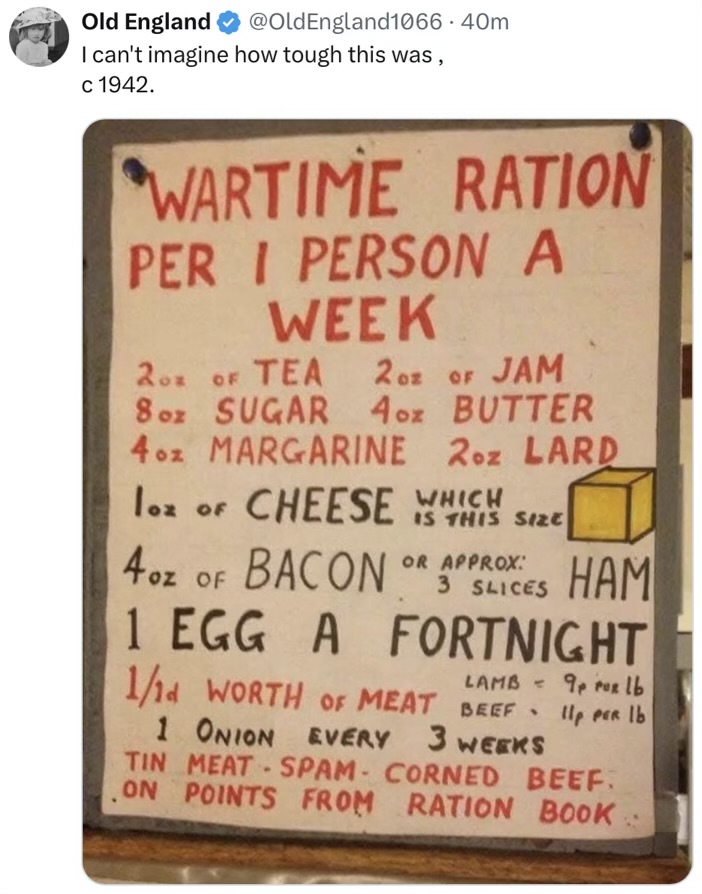 Old England @OldEngland1066 · 40m
I can't imagine how tough this was ,
c 1942.
WARTIME RATION
PER 1 PERSON A
WEEK
2oz OF TEA 2oz OF JAM
8oz SUGAR 4oz BUTTER
4oz MARGARINE 2oz LARD
1oz OF CHEESE WHICH IS THIS SIZE
4oz OF BACON OR APPROX: 3 SLICES HAM
1 EGG A FORTNIGHT
1/1d WORTH OF MEAT LAMB = 9p PER lb
BEEF - 11p PER lb
1 ONION EVERY 3 WEEKS
TIN MEAT - SPAM - CORNED BEEF.
ON POINTS FROM RATION BOOK